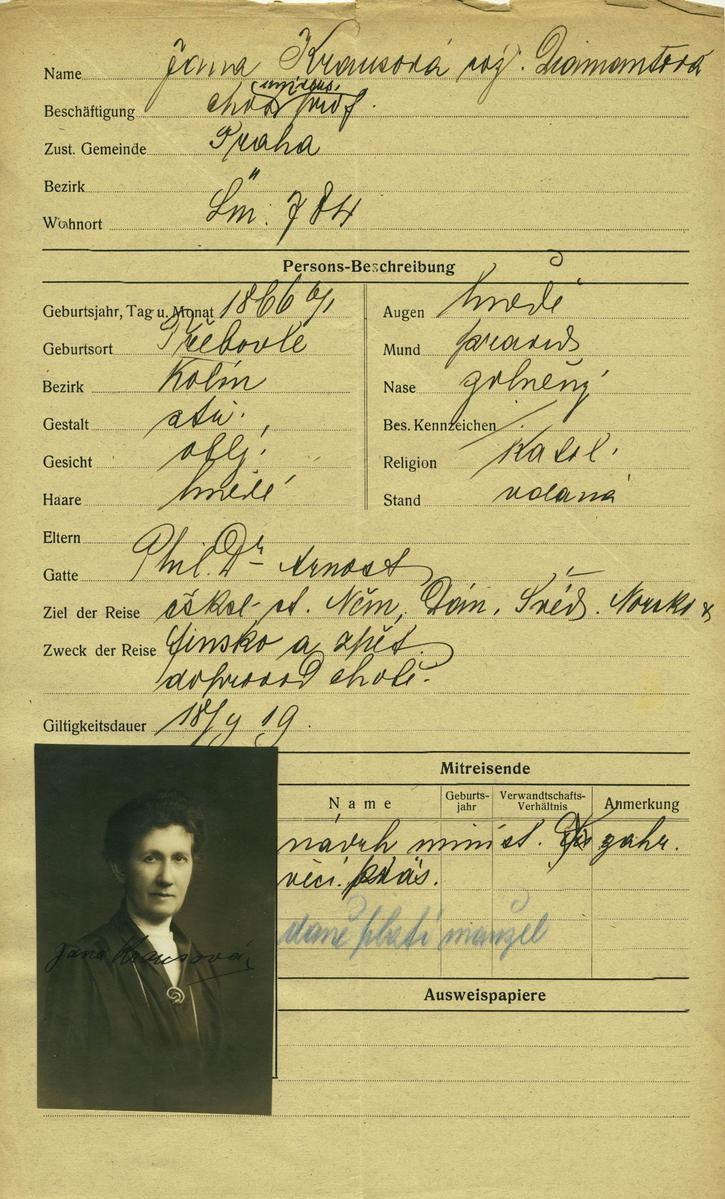 Name Jana Krausová roz. Diamantová
univers.
Beschäftigung choť prof.
Zust. Gemeinde Praha
Bezirk
Wohnort Sm: 784
Persons-Beschreibung
Geburtsjahr, Tag u. Monat 1866 6/1
Augen hnědé
Geburtsort Třebovle
Mund pravid
Bezirk Kolín
Nase zdlněný
Gestalt stř.
Bes. Kennzeichen
Gesicht obl.
Religion katol.
Haare hnědé
Stand vdaná
Eltern
Gatte Phil. Dr Arnošt
Ziel der Reise čšksl. st. Něm, Dán, Švéd. Norsko
Zweck der Reise Finsko a zpět.
doprovod chotě.
Giltigkeitsdauer 18/9 19.
Mitreisende
Name
Geburts-jahr
Verwandtschafts-Verhältnis
Anmerkung
návrh minist. zahr.
věcí.
daně platí manžel
Jana Krausová
Ausweispapiere